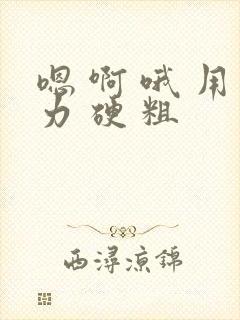 嗯啊哦用
力硬粗
西浔凉锦